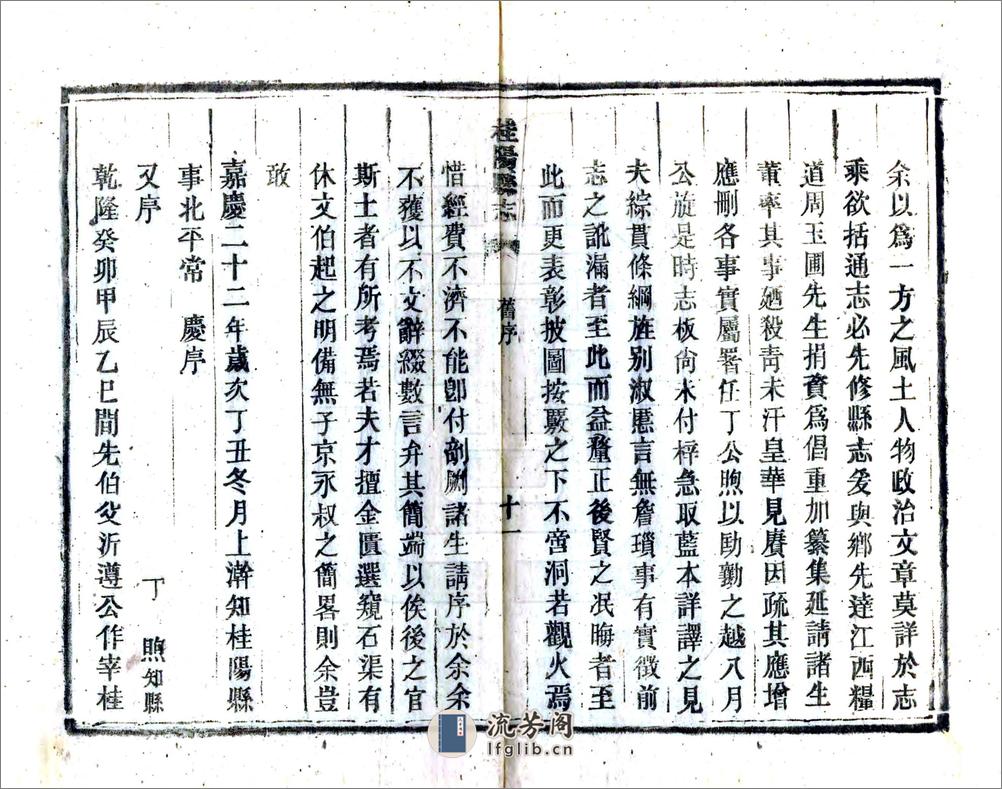 余以爲一方之風土人物政治文章莫詳於志
乘欲括通志必先修縣志爰與鄉先達江西糧
道周玉圃先生捐資爲倡重加纂集延請諸生
董率其事廼殺靑未汗皇華見賡因疏其應增
應刪各事實屬署任丁公煦以勛勷之越八月
公旋是時志板尙未付梓急取藍本詳譯之見
夫綜貫條綱旌别淑慝言無詹瑣事有實徵前
志之訛漏者至此而益釐正後賢之泯晦者至
此而更表彰披圖按覈之下不啻洞若觀火焉
桂陽縣志
舊序
十一
惜經費不濟不能卽付剞劂諸生請序於余余
不獲以不文辭綴數言弁其簡端以俟後之官
斯土者有所考焉若夫才擅金匱選窺石渠有
休文伯起之明備無子京永叔之簡畧則余豈
敢
嘉慶二十二年歲次丁丑冬月上澣知桂陽縣
事北平常 慶序
又序
丁 煦知縣
乾隆癸卯甲辰乙巳間先伯父沂遵公作宰桂
流芳阁
lfglib.cn